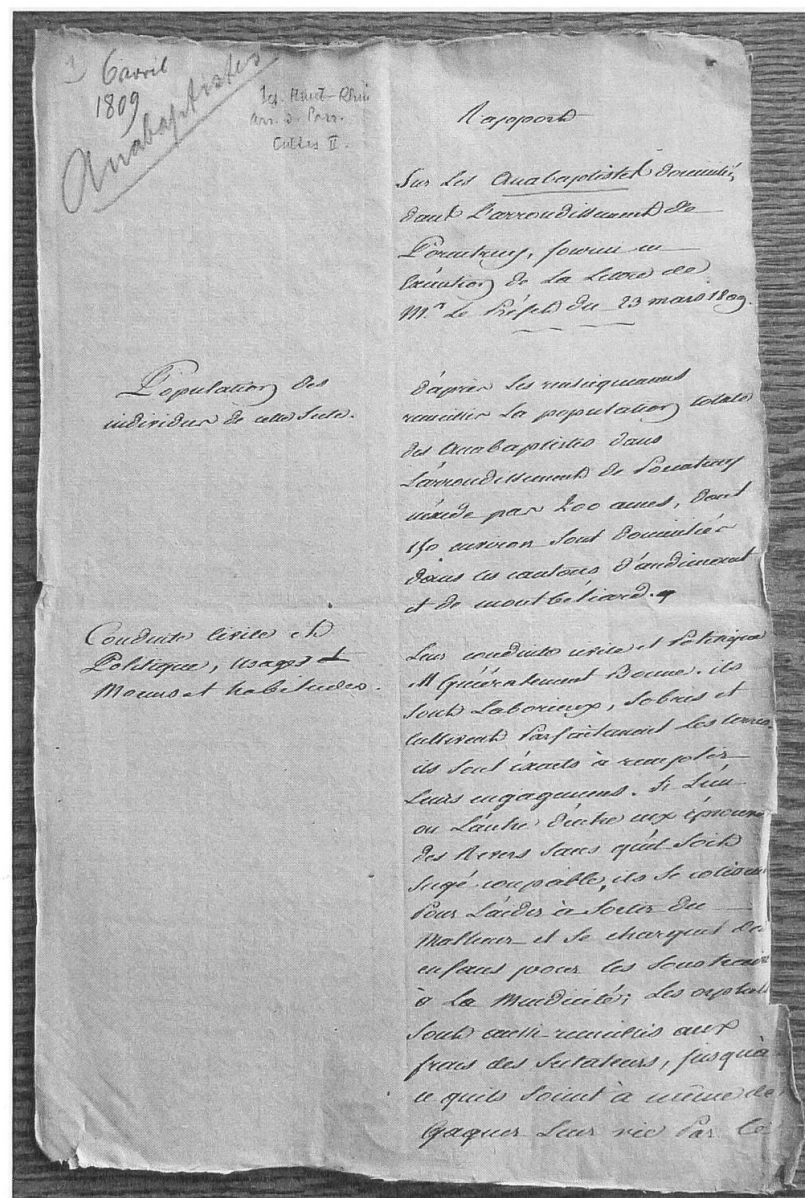 1) 6 avril
1809
Anabaptistes
Haut-Rhin
arr. d. Porr.
Cultes II.
Rapport
Sur Les Anabaptistes domiciliés
dans L'arrondissement de
Porentruy, fourni en
Exécution de La Lettre de
M.r Le Préfet du 23 mars 1809.
Population des
individus de cette Secte.
d'après Les renseignemens
recueillis La population totale
des Anabaptistes dans
L'arrondissement de Porentruy
n'excède pas 200 ames, dont
150 environ sont domiciliés
dans les cantons d'audincourt
et de montbéliard.
Conduite Civile et
Politique, usages
Moeurs et habitudes.
Leur conduite civile et Politique
est Généralement Bonne. ils
sont Laborieux, Sobres et
Cultivent Parfaitement Les terres.
ils sont éxacts à remplir
Leurs engagemens. Si L'un
ou L'autre d'entre eux éprouve
des Revers Sans qu'il soit
Jugé coupable, ils se cotisent
Pour L'aider à Sortir du
Malheur et se chargent des
enfans pour les soustraire
à La Mendicité; Les orphelins
sont aussi recueillis aux
frais des Sectateurs, jusqu'à
ce qu'ils soient à même de
Gagner Leur vie Par Le